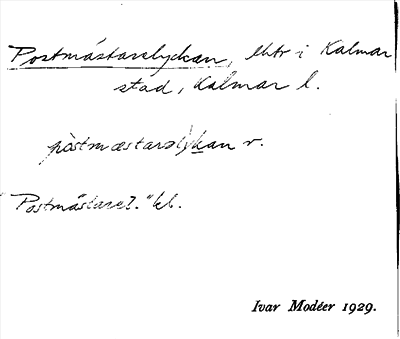 Postmästarelyckan, lhtr i Kalmar
stad, Kalmar l.
pòstmæstarəlykan v.
Postmästarel. "kl.
Ivar Modéer 1929.